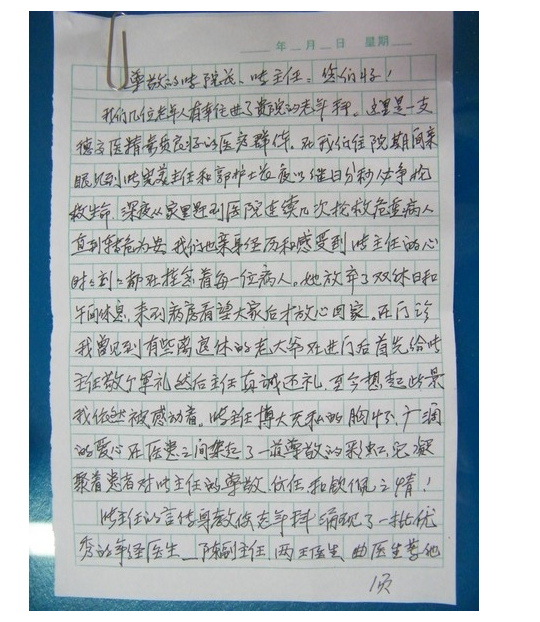 年 月 日 星期
尊敬的 院长、 主任:您们好!
我们几位老年人有幸住进了贵院的老年科。这里是一支
德高医精素质良好的医疗群体。在我们住院期间亲
眼见到 主任和郭护士长夜以继日分秒必争抢
救生命,深夜从家里赶到医院连续几次抢救危重病人
直到转危为安。我们也亲身经历和感受到 主任的心
时时刻刻都在挂念着每一位病人。她放弃了双休日和
午间休息,来到病房看望大家后才放心回家。在门诊
我曾见到有些离退休的老大爷在进门后首先给
主任敬个军礼然后主任真诚还礼,至今想起此景
我依然被感动着。 主任博大无私的胸怀、广阔
的爱心在医患之间架起了一道尊敬的彩虹,它凝
聚着患者对 主任的尊敬、信任和钦佩之情!
主任的言传身教使老年科涌现了一批优
秀的年轻医生 陈副主任、两王医生、曲医生等他
1页